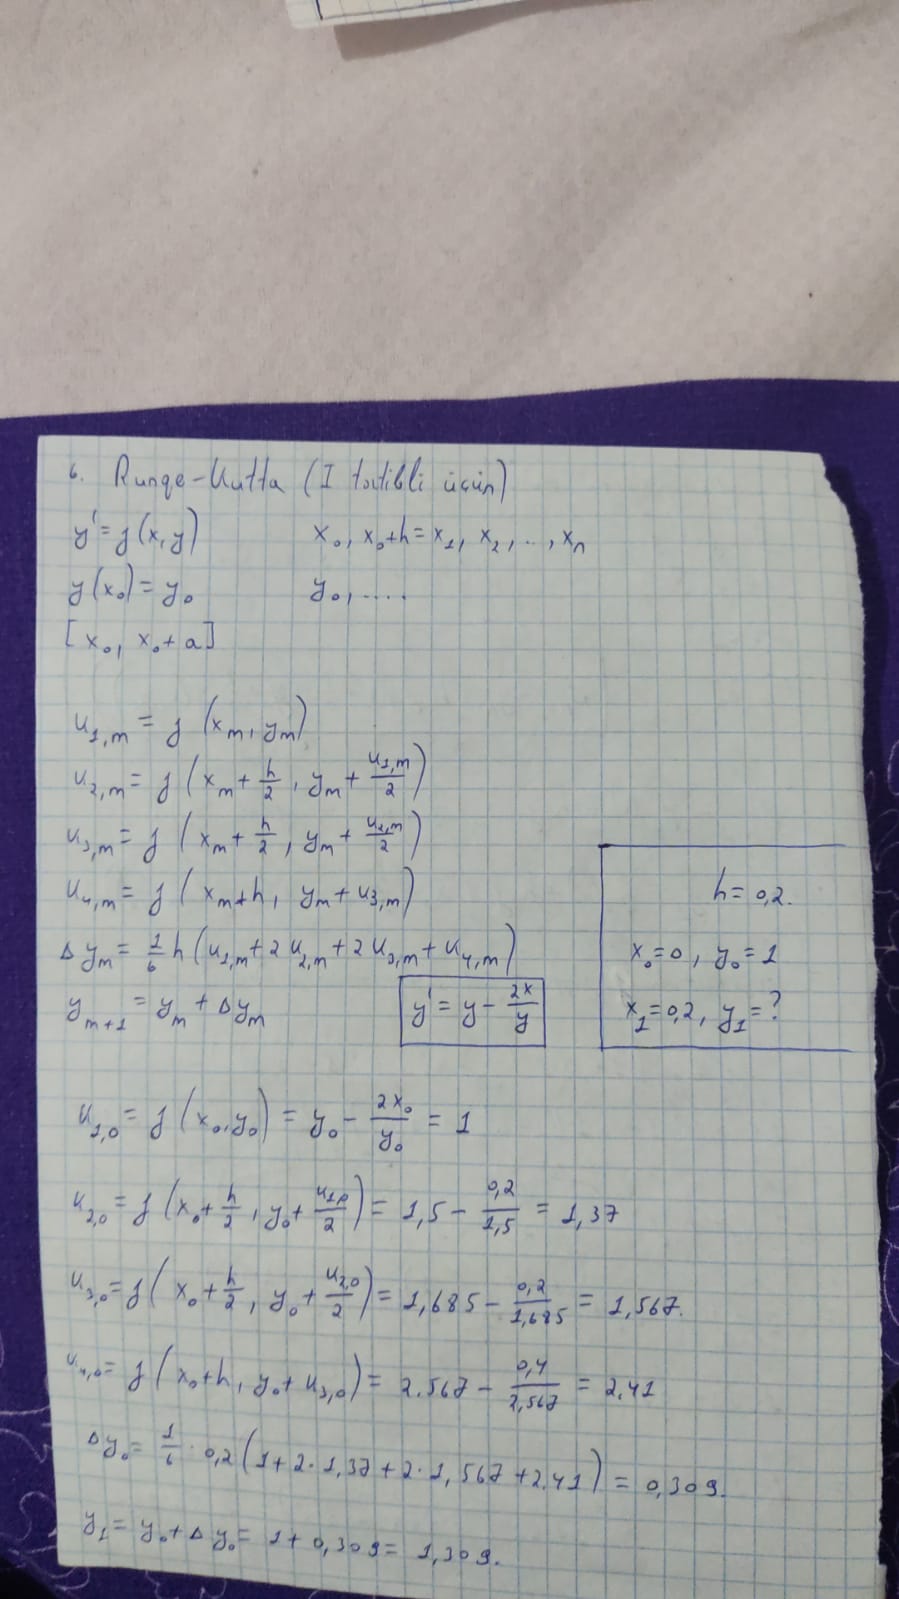 6. Runge-Kutta (I tərtibli üçün)
y' = f(x,y)    x₀, x₀+h = x₁, x₂, .., xₙ
y(x₀) = y₀    y₀, ....
[x₀, x₀+a]
K₁,ₘ = f(xₘ, yₘ)
K₂,ₘ = f(xₘ + h/2, yₘ + K₁,ₘ/2)
K₃,ₘ = f(xₘ + h/2, yₘ + K₂,ₘ/2)
K₄,ₘ = f(xₘ+h, yₘ+K₃,ₘ)
Δyₘ = 1/6 h (K₁,ₘ + 2K₂,ₘ + 2K₃,ₘ + K₄,ₘ)
yₘ₊₁ = yₘ + Δyₘ
y' = y - 2x/y
h = 0,2.
x₀=0, y₀=1
x₁=0,2, y₁=?
K₁,₀ = f(x₀,y₀) = y₀ - 2x₀/y₀ = 1
K₂,₀ = f(x₀ + h/2, y₀ + K₁,₀/2) = 1,5 - 0,2/1,5 = 1,37
K₃,₀ = f(x₀ + h/2, y₀ + K₂,₀/2) = 1,685 - 0,2/1,685 = 1,567.
K₄,₀ = f(x₀+h, y₀+K₃,₀) = 2.567 - 0,4/2,567 = 2,41
Δy₀ = 1/6 · 0,2(1+2·1,37+2·1,567+2,41) = 0,309.
y₁ = y₀+Δy₀ = 1+0,309 = 1,309.